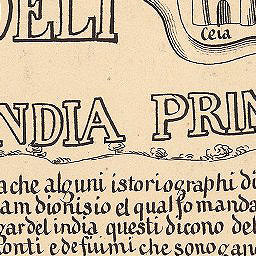 DELI
Ceia
NDIA PRIN
ache alguni istoriographi di
am dionisio el qual fo manda
gardel india questi dicono del
conti e de fiumi che sono gan